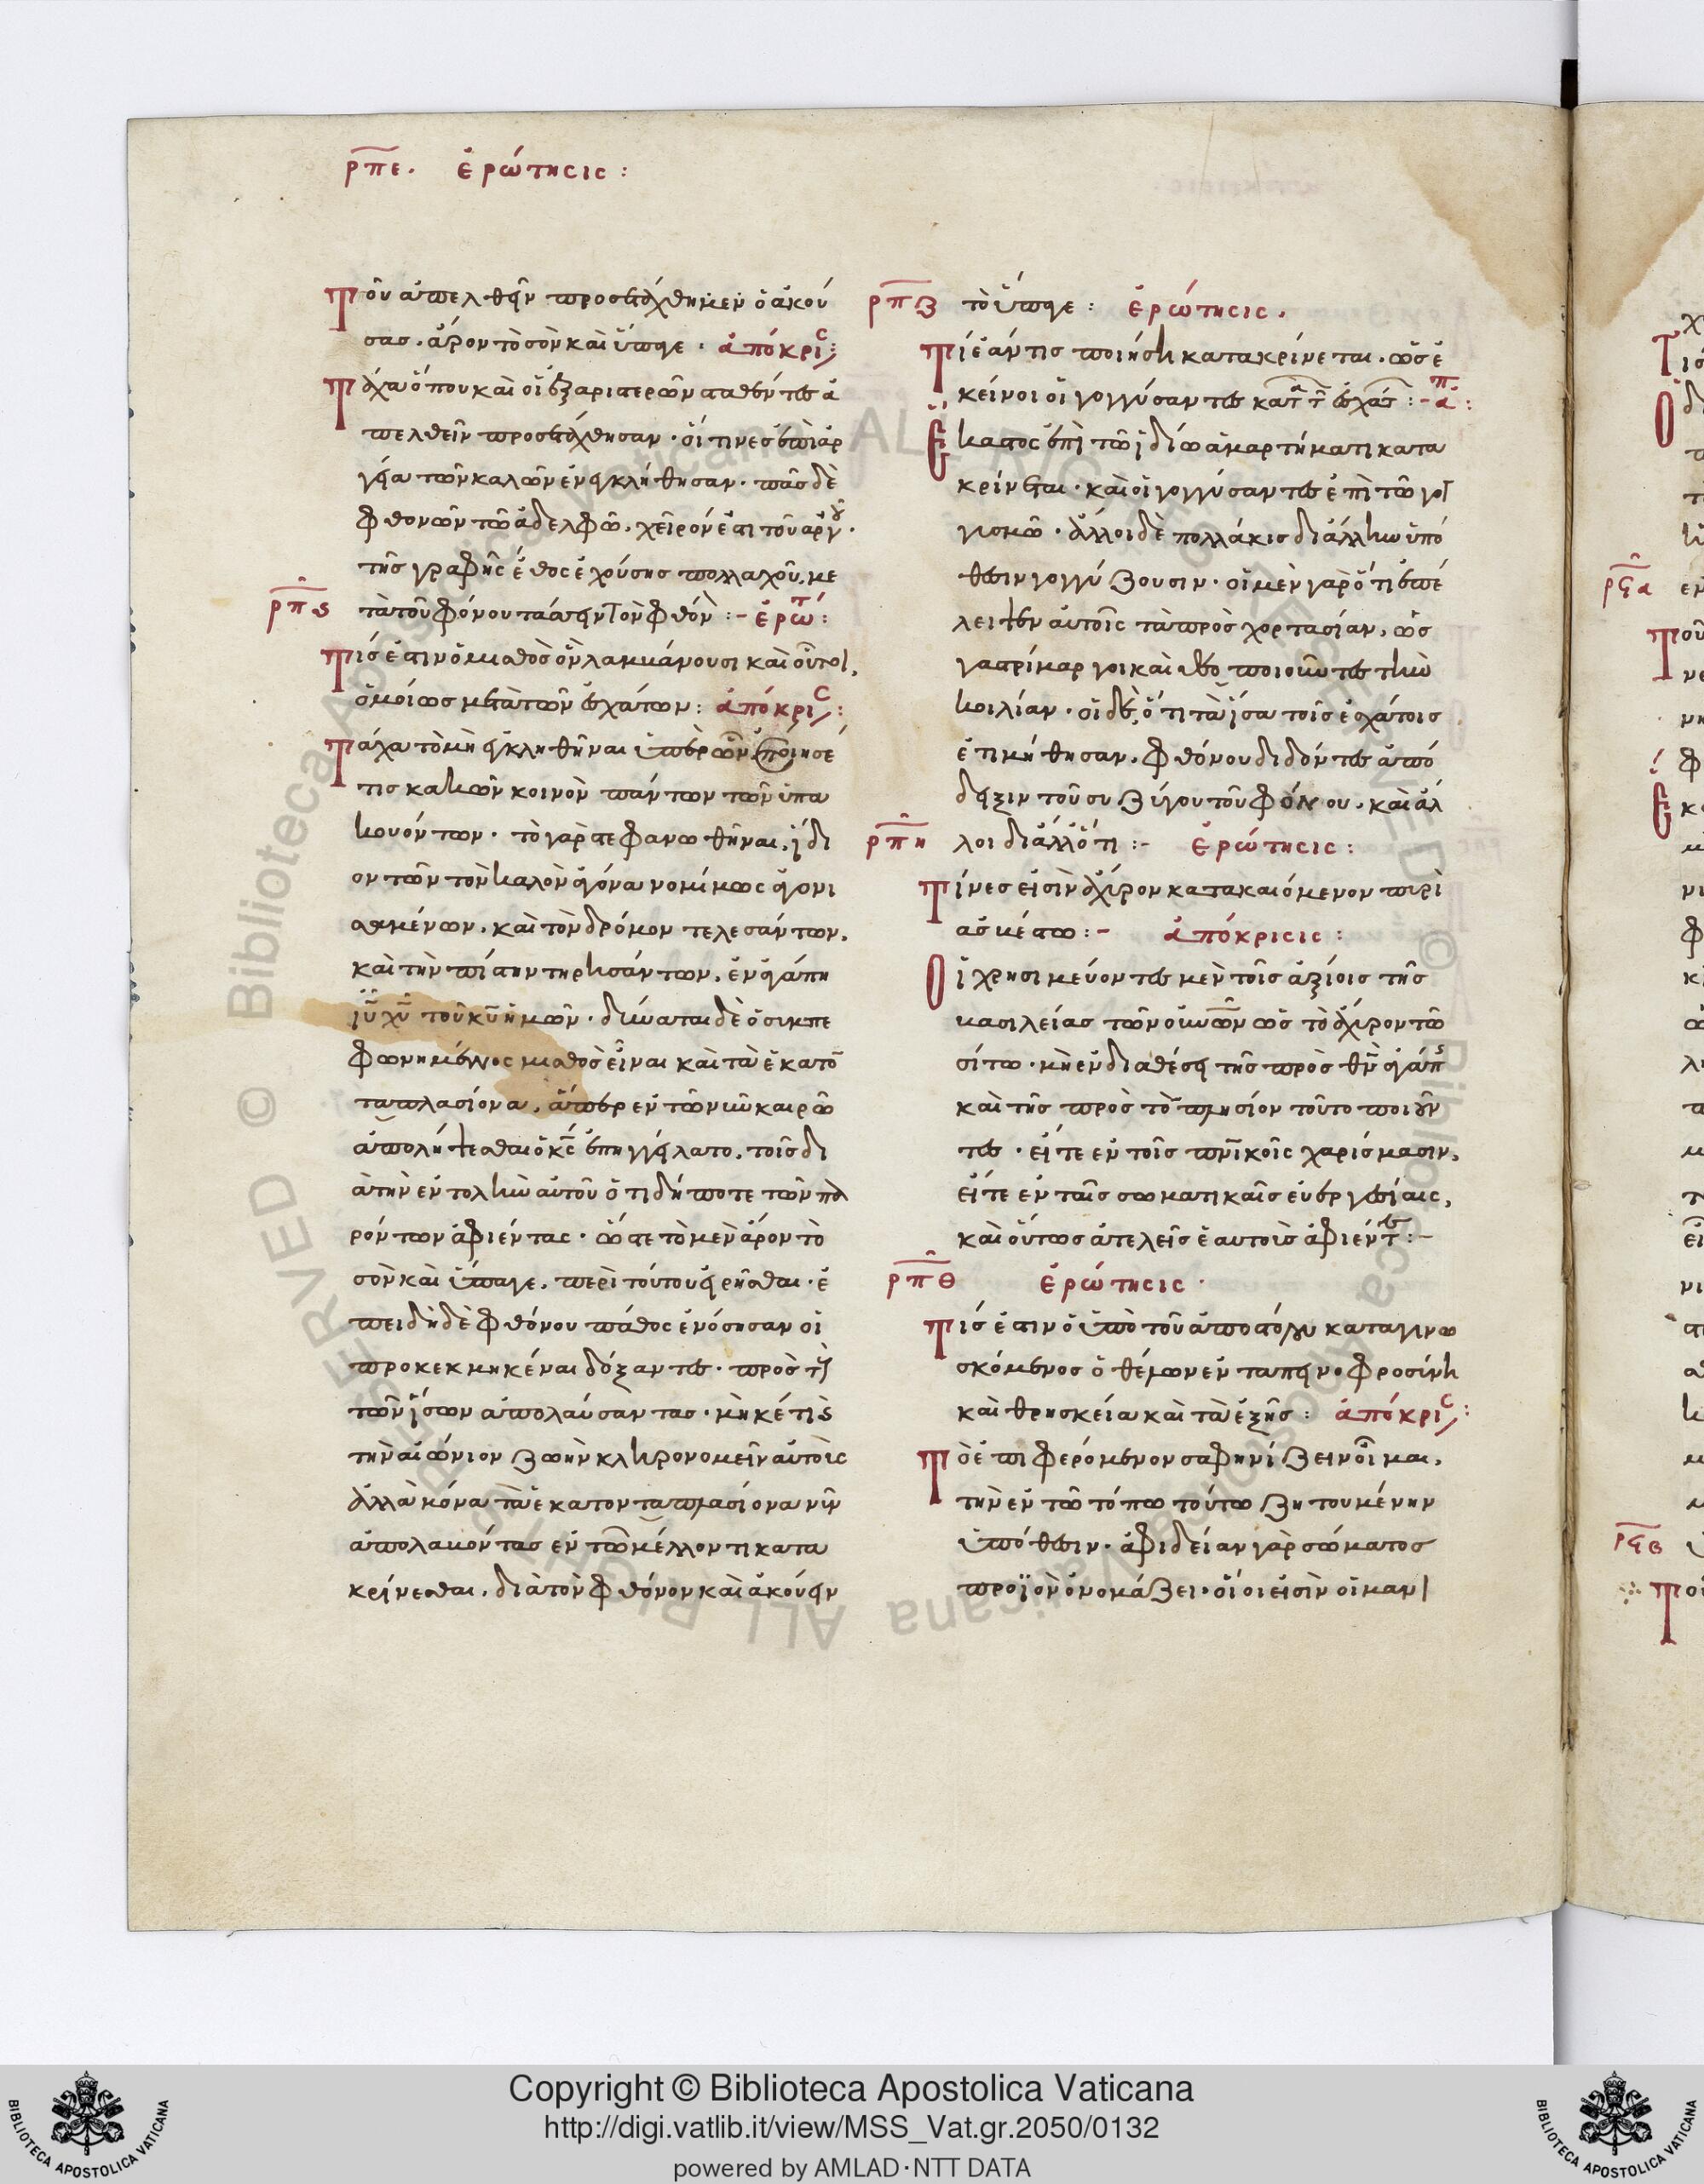 ρπε. ἐρώτησις :
Ποῦ ἀπελθεῖν προσετάχθη μὲν ὁ ἀκού
σας. ἆρον τὸ σὸν καὶ ὕπαγε . ἀπόκρις :
Τάχα ὅπου καὶ οἱ ἐξ ἀριστερῶν σταθέντες ἀ
πελθεῖν προσετάχθησαν . οἵτινες ἐπὶ ἀρ
γεία τῶν καλῶν ἐνεκλήθησαν . πᾶς δὲ
φθονῶν τῶ ἀδελφῶ . χεῖρον ἐστι τοῦ ἀργοῦ .
τῆς γραφῆς ἔθος ἐχούσης πολλαχοῦ, με
ρπς τὰ τοῦ φόνου τάσσειν τὸν φθόν :- ἐρώτ :
Τίς ἐστιν ὁ μισθὸς ὃν λαμβάνουσι καὶ οὗτοι,
ὁμοίως μετὰ τῶν ἐσχάτων : ἀπόκρις :
Τάχα τὸ μὴ ἐγκληθῆναι ὑπὲρ ὧν ἐποίησέ
τις κακῶν κοινὸν πάντων τῶν ὑπα
κουόντων . τὸ γὰρ στεφανωθῆναι, ἴδι
ον τῶν τὸν καλὸν ἀγῶνα νομίμως ἀγωνι
σαμένων . καὶ τὸν δρόμον τελεσάντων .
καὶ τὴν πίστιν τηρησάντων . ἐν ἀγάπη
ἰῦ χῦ τοῦ κῦ ἡμῶν . δύναται δὲ ὁ συμπε
φωνημένος μισθὸς εἶναι καὶ τὰ ἑκατὸν
ταπλασίονα, ἅπερ ἐν τῶ νῦν καιρῶ
ἀπολήψεσθαι ὁ κς ἐπηγγείλατο . τοῖς δι
ὰ τὴν ἐντολὴν αὐτοῦ ὁτιδήποτε τῶν πα
ρόντων ἀφιέντας . ὥστε τὸ μὲν ἆρον τὸ
σὸν καὶ ὕπαγε, περὶ τούτου εἰρῆσθαι . ἐ
πειδὴ δὲ φθόνου πάθος ἐνόσησαν οἱ
προκεκμηκέναι δόξαντες . πρὸς τοὺς
τῶν ἴσων ἀπολαύσαντας . μηκέτι εἰς
τὴν αἰώνιον ζωὴν κληρονομεῖν αὐτοῖς
ἀλλὰ μόνα τὰ ἑκατονταπλασίονα νῦν
ἀπολαβόντας ἐν τῶ μέλλοντι κατα
κρίνεσθαι . διὰ τὸν φθόνον καὶ ἀκούειν
ρπζ τὸ ὕπαγε : ἐρώτησις .
Τί ἐάν τις ποιήση κατακρίνεται . ὡς ἐ
κεῖνοι οἱ γογγύσαντες κατὰ τ ἐσχάτ :- ἀπ :
Ἕκαστος ἐπὶ τῶ ἰδίω ἁμαρτήματι κατα
κρίνεται . καὶ οἱ γογγύσαντες ἐπὶ τῶ γογ
γισμῶ . ἄλλοι δὲ πολλάκις δι ἄλλην ὑπό
θεσιν γογγύζουσιν . οἱ μὲν γὰρ ὅτι ἐπέ
λειψεν αὐτοῖς τὰ πρὸς χορτασίαν, ὡς
γαστρίμαργοι καὶ θεοποιοῦντες τὴν
κοιλίαν . οἱ δὲ, ὅτι τὰ ἴσα τοῖς ἐσχάτοις
ἐτιμήθησαν . φθόνου διδόντες ἀπό
δειξιν τοῦ συζύγου τοῦ φόνου . καὶ ἄλ
ρπη λοι δι ἄλλό τι :- ἐρώτησις :
Τίνες εἰσὶν ἄχυρον κατακαιόμενον πυρὶ
ἀσβέστω :- ἀπόκρισις :
Οἱ χρησιμεύοντες μὲν τοῖς ἀξίοις τῆς
βασιλείας τῶν οὐνῶν ὡς τὸ ἄχυρον τῶ
σίτω . μὴ ἐν διαθέσει τῆς πρὸς θν ἀγάπης
καὶ τῆς πρὸς τὸ πλησίον τοῦτο ποιοῦν
τες . εἴτε ἐν τοῖς πνικοῖς χαρίσμασιν,
εἴτε ἐν ταῖς σωματικαῖς εὐεργεσίαις,
καὶ οὕτως ἀτελεῖς ἑαυτοὺς ἀφιέντες :-
ρπθ ἐρώτησις .
Τίς ἐστιν ὁ ὑπὸ τοῦ ἀποστόλου καταγινω
σκόμενος ὁ θέλων ἐν ταπεινοφροσύνη
καὶ θρησκεία καὶ τὰ ἑξῆς : ἀπόκρις :
Τὸ ἐπιφερόμενον σαφηνίζειν οἶμαι,
τὴν ἐν τῶ τόπω τούτω ζητουμένην
ὑπόθεσιν . ἀφιδείαν γὰρ σώματος
προϊὸν ὀνομάζει . οἷοι εἰσὶν οἱ μανι